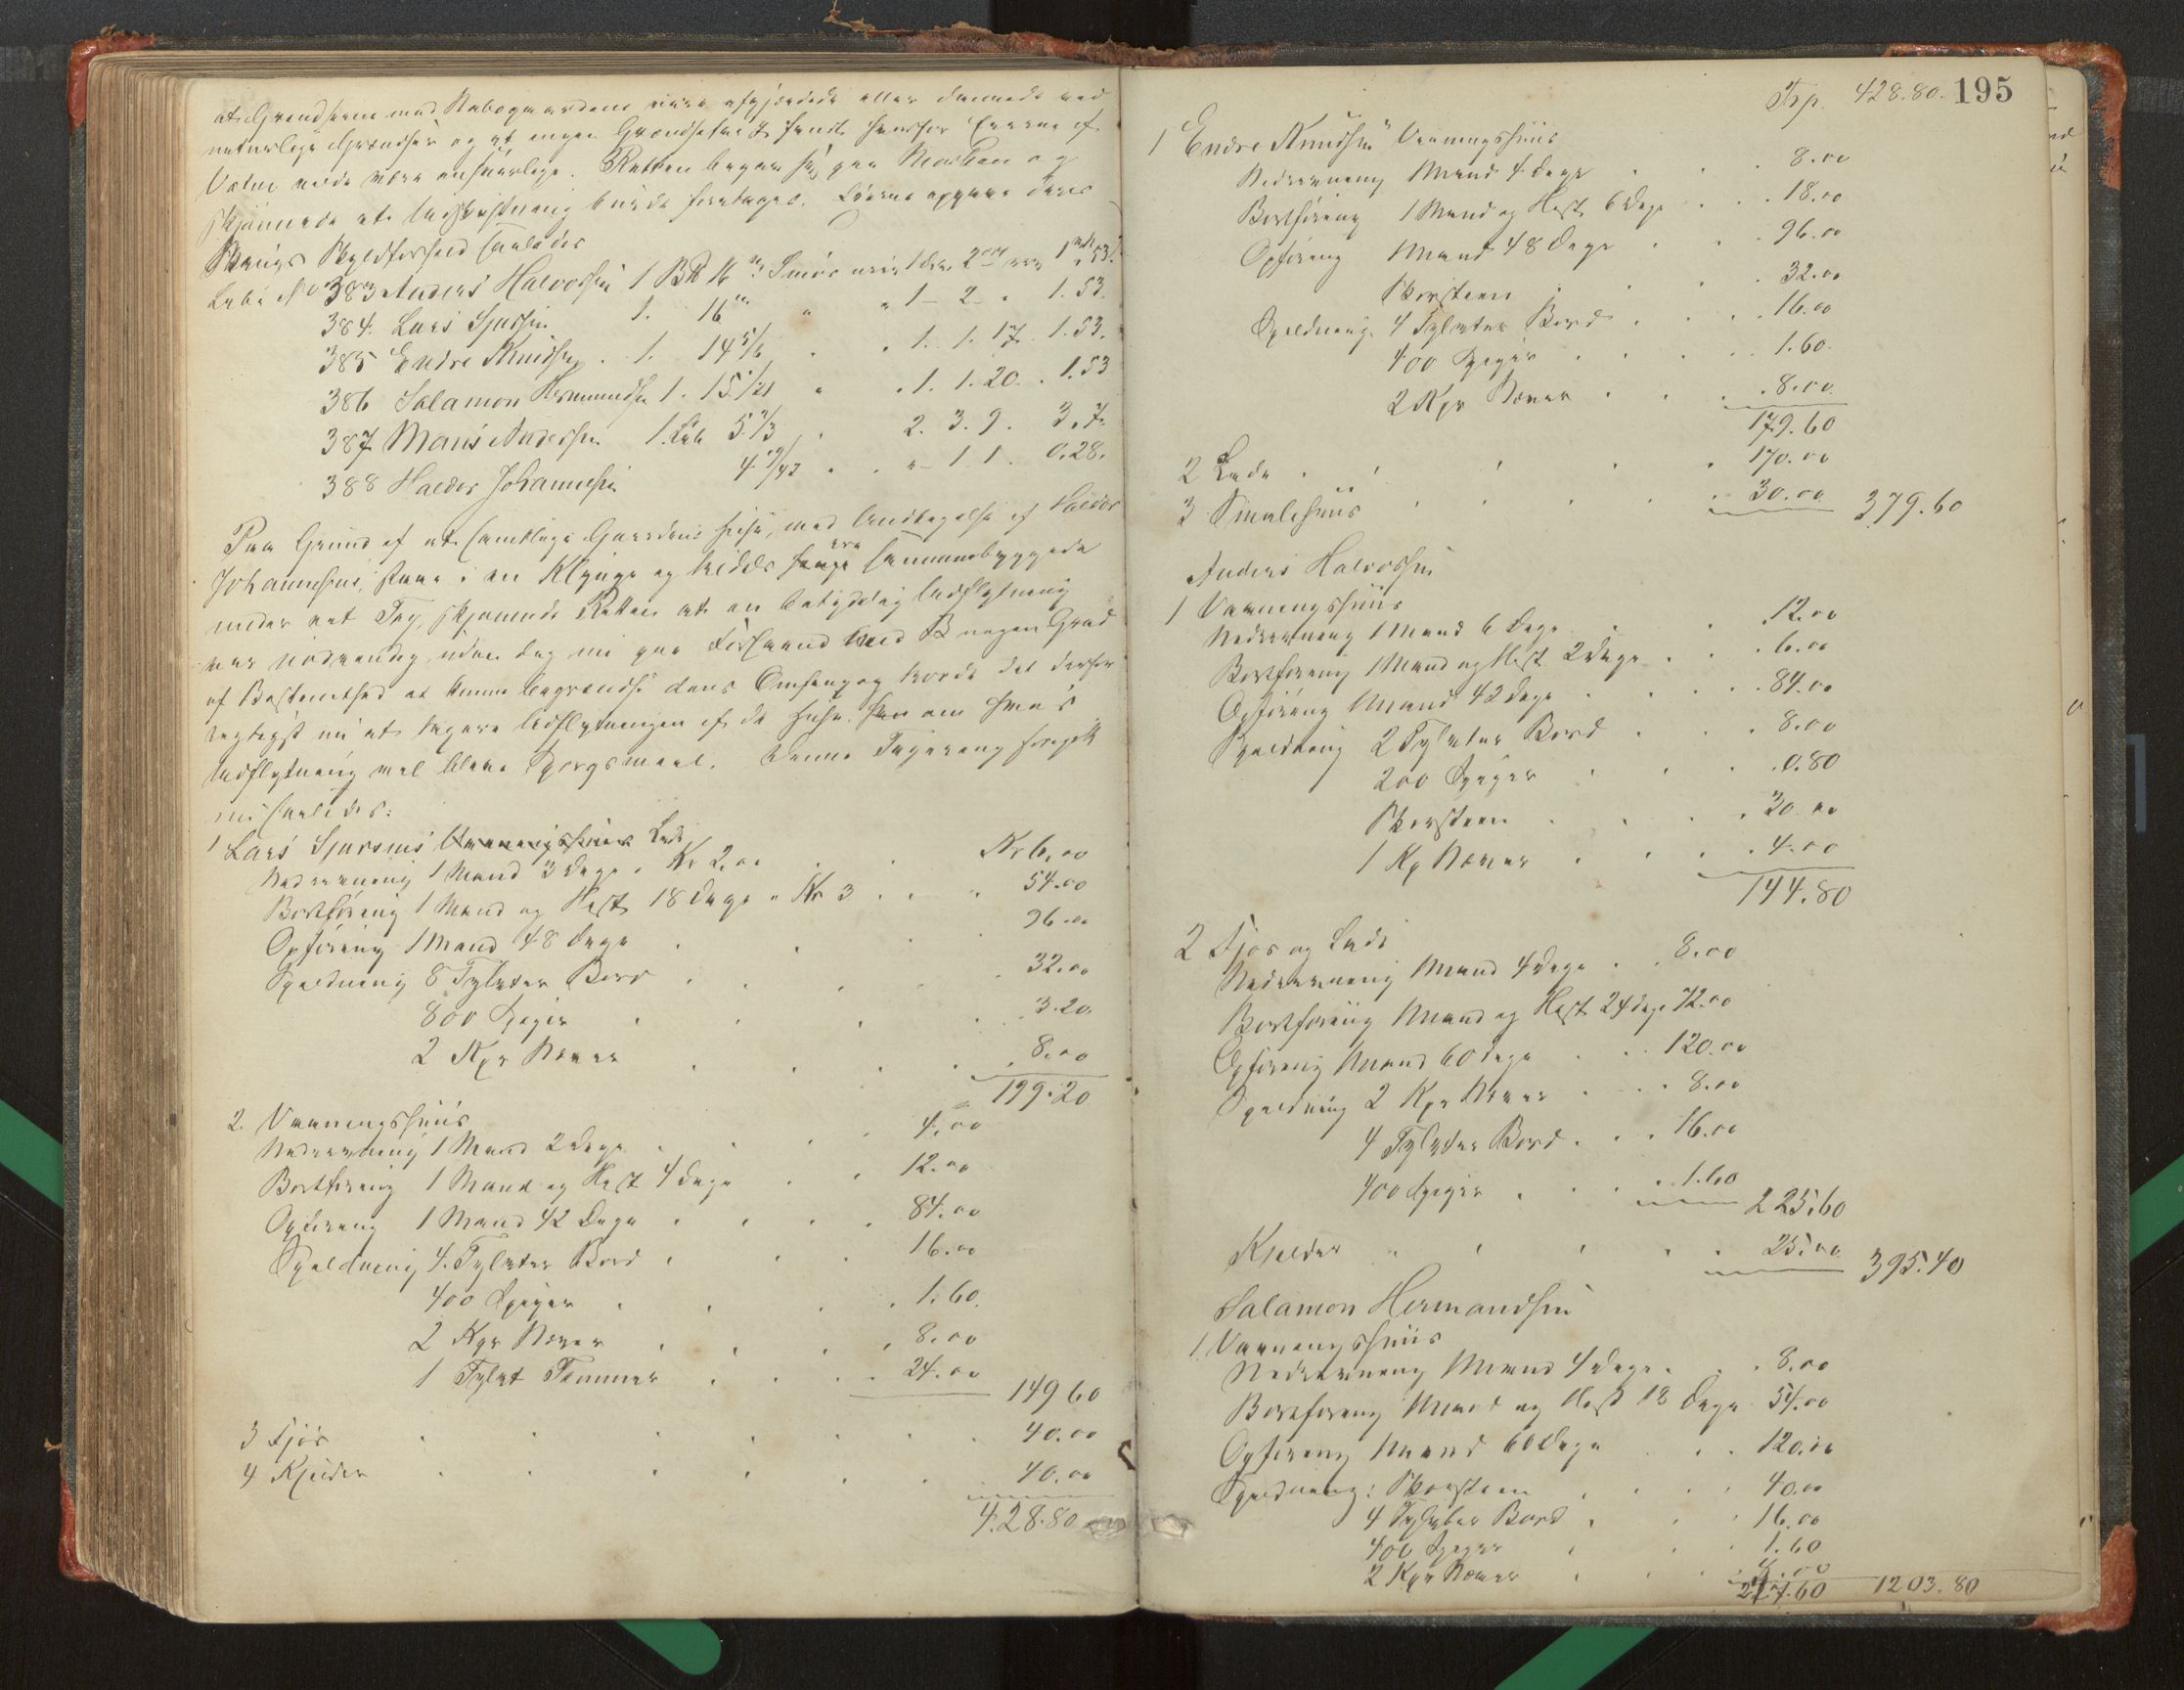 at Grændserne mod Nabogaardene vare afgjærdede eller dannede ved
naturlige Grændser og at ingen Grændsetvist fandt
Vidne
skjønnede at Udskiftning burde foretages. Eierne opgave deres
Brugs Skyldforhold saaledes
Løbe No 383 Anders Halvorsen 1 Bpd 16 Smør 1 2 1 53
384. Lars Sjursen 1. 16 " " 1 - 2 - 1.53.
385 Endre Knudsen . 1. 14 5/6 . 1. 1. 17. 1.53.
386 Salamon Hermundsen 1. 15 1/21 " . 1. 1. 20. 1.53
387 Mons Andersen 1 Løb 5 1/3 . 2. 3. 9. 3.7.
388 Haldor Johannesen 4 19/42 . . " 1 1. 0.28.
Paa Grund af at samtlige Gaardens Huse, med Undtagelse af Haldor
Johannesens, staae i en Klynge og tildels ere sammenbyggede
under eet Tag, skjønnede Retten at en betydelig Udflytning
var nødvendig uden dog nu paa Forhaand med nogen Grad
af Bestemthed at kunne begrændse dens Omfang og troede det derfor
rigtigst nu at taxere Udflytningen af de Huse om hvis
Udflytning vil blive Spørgsmaal. Denne Taxering foregik
nu saaledes:
1 Lars Sjursens Vaaningshuus Lade
Nedrivning 1 Mand 3 Dage . Kr 2.00 . . Kr 6.00
Bortføring 1 Mand og Hest 18 Dage a Kr 3 . . . 54.00
Opføring 1 Mand 48 Dage . . . 96.00
Spildning 8 Tylvter Bord . . . . 32.00
800 Spiger . . . . 3.20.
2 Kpr Næver . . . . 8.00
199.20
2. Vaaningshuus
Nedrivning 1 Mand 2 Dage . . . 4.00
Bortføring 1 Mand og Hest 4 Dage . . 12.00
Opføring 1 Mand 42 Dage . . . . 84.00
Spildning 4 Tylvter Bord . . . 16.00
400 Spiger . . . . 1.60.
2 Kpr Næver . . . . 8.00
1 Tylvt Tømmer . . . . 24.00 149 60
3 Fjøs . . . . . . . 40.00
4 Kjelder . . . . . . . 40.00
428.80
Trp. 428.80. 195
1 Endre Knudsen Vaaningshuus
Nedrivning 1 Mand 4 Dage . . . 8.00
Bortføring 1 Mand og Hest 6 Dage . . . 18.00
Opføring 1 Mand 48 Dage . . . 96.00
Skorsteen . . . . 32.00
Spildning 4 Tylvter Bord . . . 16.00
400 Spiger . . . . 1.60.
2 Kpr Næver . . . . 8.00
179.60
2 Lade . . . . . 170.00
3 Smalehuus . . . . . 30.00 379.60
Anders Halvorsen
1 Vaaningshuus
Nedrivning 1 Mand 6 Dage . . . 12.00
Bortføring 1 Mand og Hest 2 Dage . . . 6.00
Opføring 1 Mand 42 Dage . . . . 84.00
Spildning 2 Tylvter Bord . . . 8.00
200 Spiger . . . . 0.80
Skorsteen . . . . 30.00
1 Kp Næver . . . . 4.00
144.80
2 Fjøs og Lade
Nedrivning 1 Mand 4 Dage . . 8.00
Bortføring 1 Mand og Hest 24 Dage 72.00
Opføring 1 Mand 60 Dage . . . 120.00
Spildning 2 Kpr Næver . . . 8.00
4 Tylvter Bord . . . 16.00
400 Spiger . . . . 1.60 225.60
Kjelder . . . . . 25.00 395.40
Salamon Hermandsen
1 Vaaningshuus
Nedrivning 1 Mand 4 Dage . . . 8.00
Bortføring 1 Mand og Hest 18 Dage 54.00
Opføring 1 Mand 60 Dage . . . 120.00
Spildning: Skorsteen . . . . 40.00
4 Tylvter Bord . . . 16.00
400 Spiger . . . 1.60
2 Kpr Næver . . . 8.00
1203.80